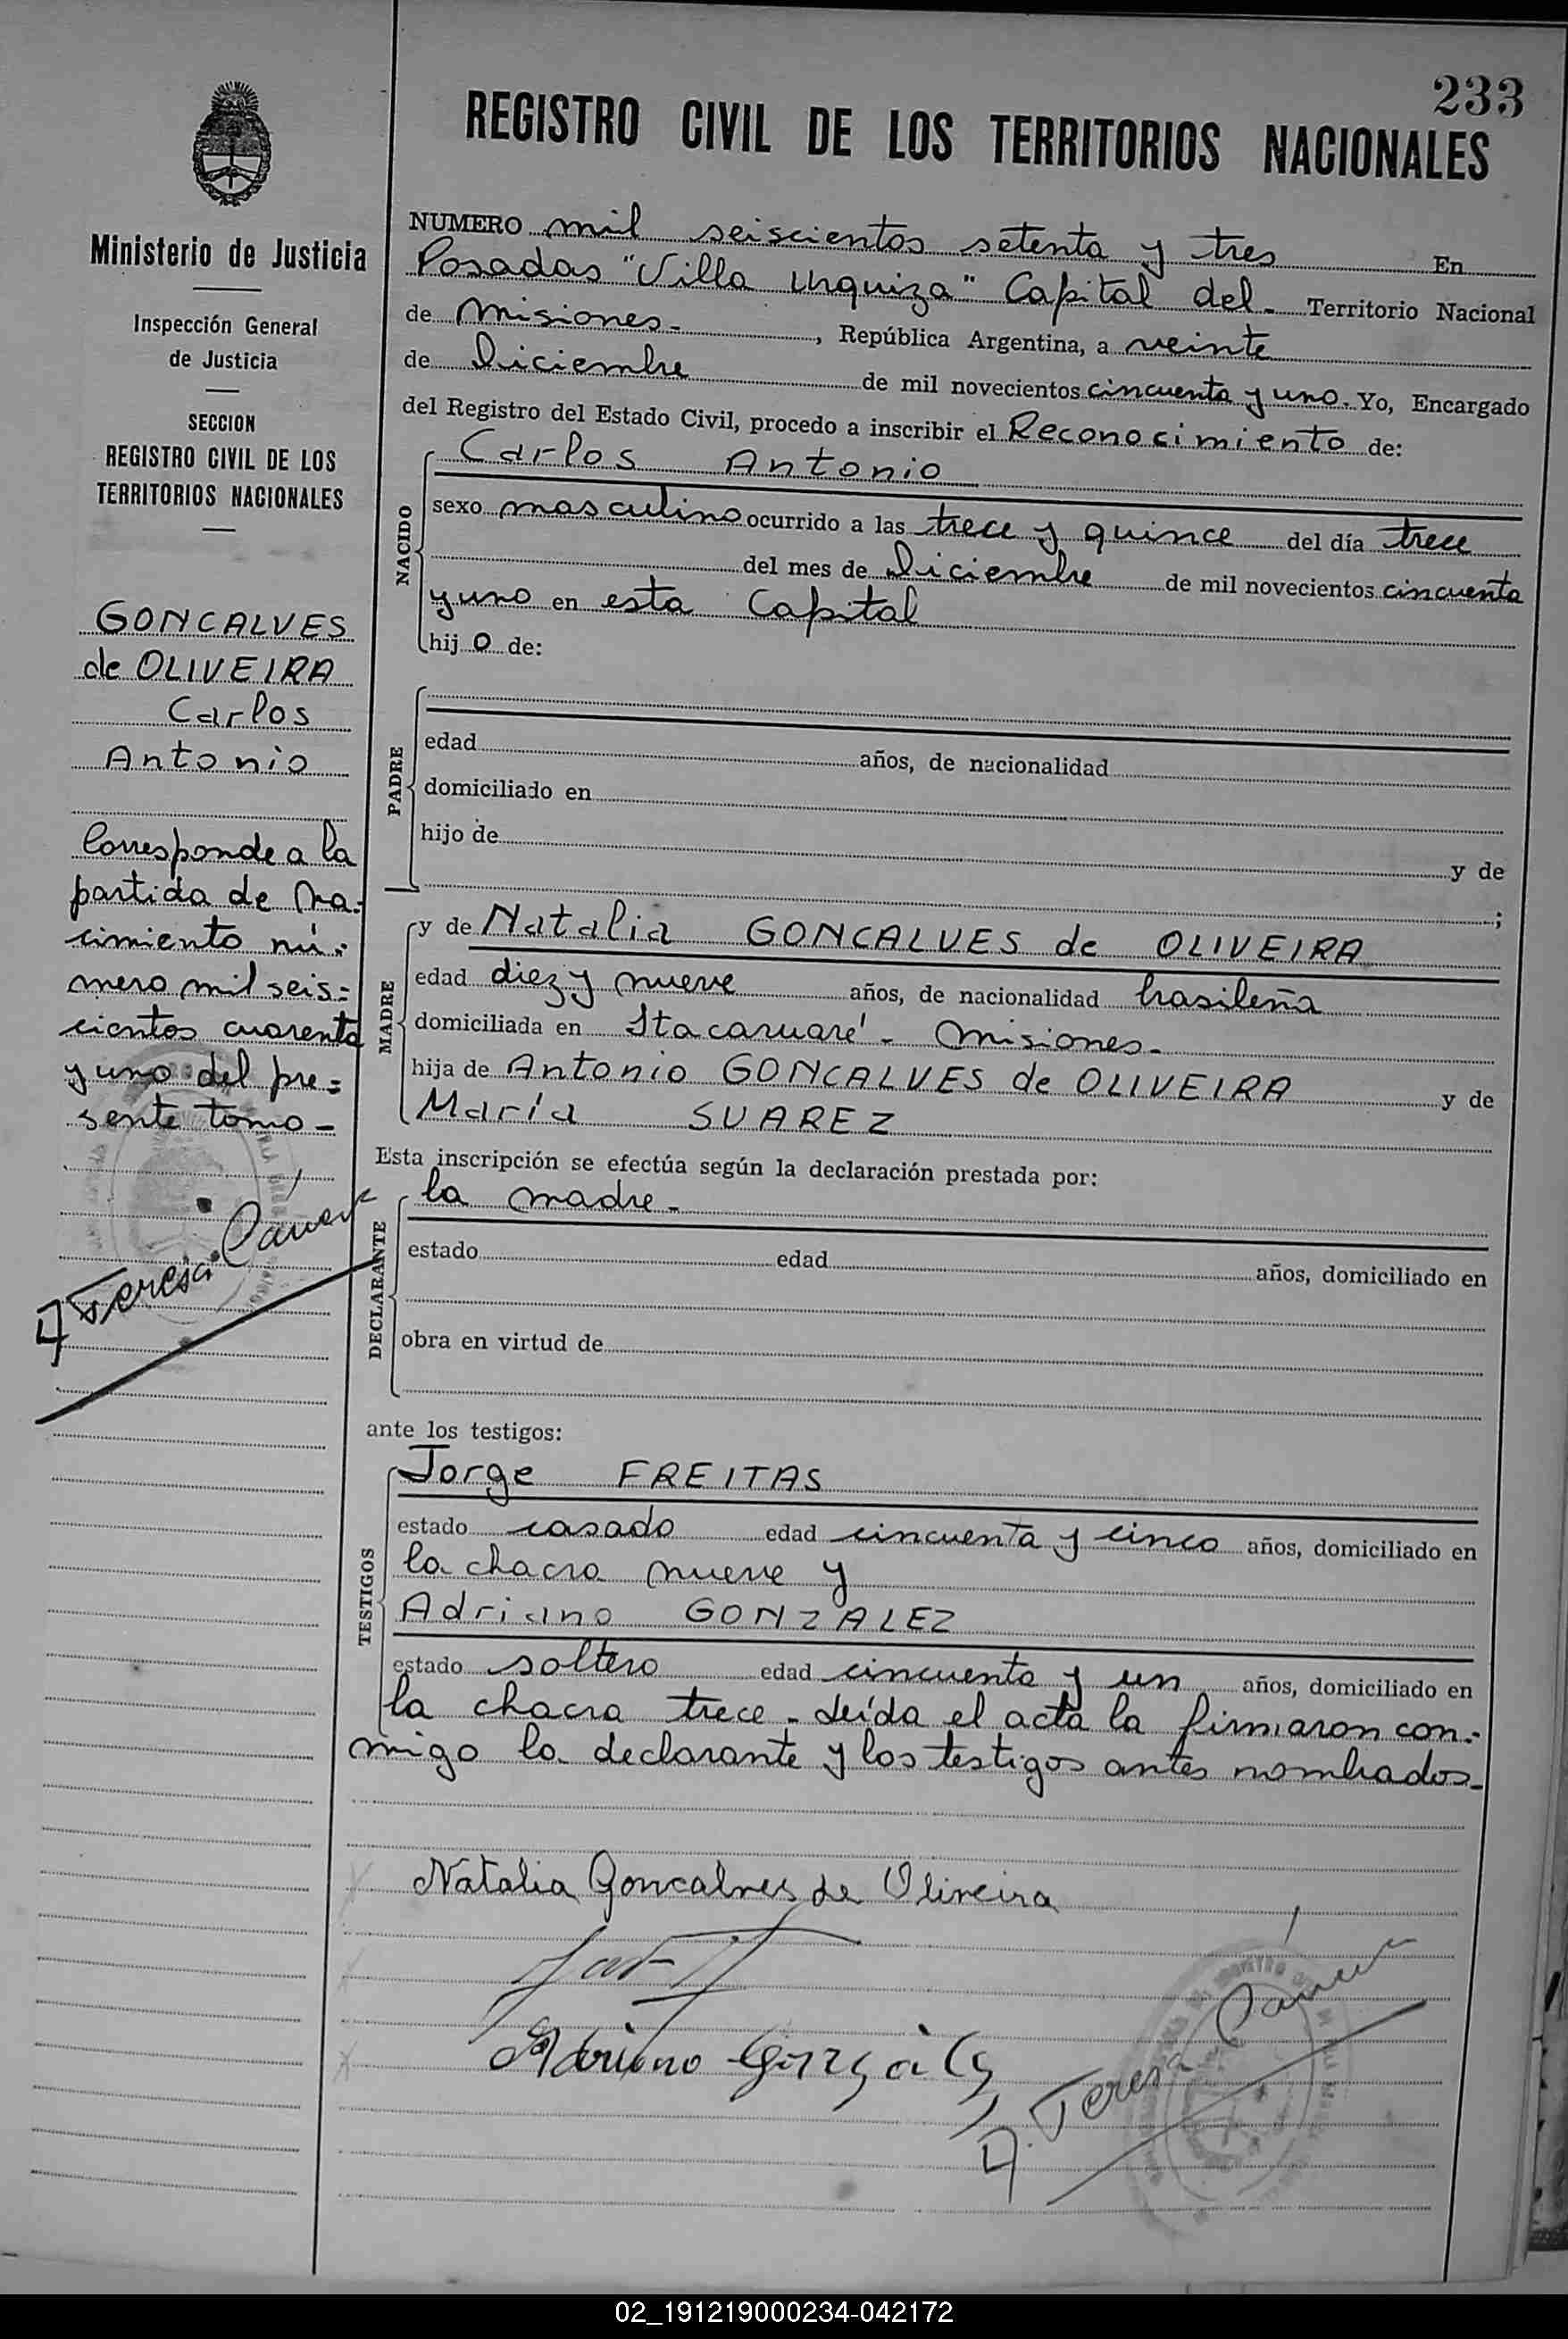 233
REGISTRO CIVIL DE LOS TERRITORIOS NACIONALES
Ministerio de Justicia
Inspección General
de Justicia
SECCION
REGISTRO CIVIL DE LOS
TERRITORIOS NACIONALES
GONCALVES
de OLIVEIRA
Carlos
Antonio
Corresponde a la
partida de na=
cimiento nú=
mero mil seis=
cientos cuarenta
y uno del pre=
sente tomo-
A. Teresa
NUMERO mil seiscientos setenta y tres En
Posadas "Villa Urquiza" Capital del- Territorio Nacional
de Misiones-, República Argentina, a veinte
de Diciembre de mil novecientos cincuenta y uno. Yo, Encargado
del Registro del Estado Civil, procedo a inscribir el Reconocimiento de:
NACIDO
Carlos Antonio
sexo masculino ocurrido a las trece y quince del día trece
del mes de Diciembre de mil novecientos cincuenta
y uno en esta Capital
hij o de:
PADRE
edad años, de nacionalidad
domiciliado en
hijo de y de
;
MADRE
y de Natalia GONCALVES de OLIVEIRA
edad diez y nueve años, de nacionalidad brasileña
domiciliada en Itacaruaré - Misiones-
hija de Antonio GONCALVES de OLIVEIRA y de
María SUAREZ
Esta inscripción se efectúa según la declaración prestada por:
DECLARANTE
la madre-
estado edad años, domiciliado en
obra en virtud de
ante los testigos:
TESTIGOS
Jorge FREITAS
estado casado edad cincuenta y cinco años, domiciliado en
la chacra nueve y
Adriano GONZALEZ
estado soltero edad cincuenta y un años, domiciliado en
la chacra trece - Leída el acta la firmaron con=
migo la declarante y los testigos antes nombrados-
Natalia Goncalves de Oliveira
Adriano
A. Teresa
02_191219000234-042172